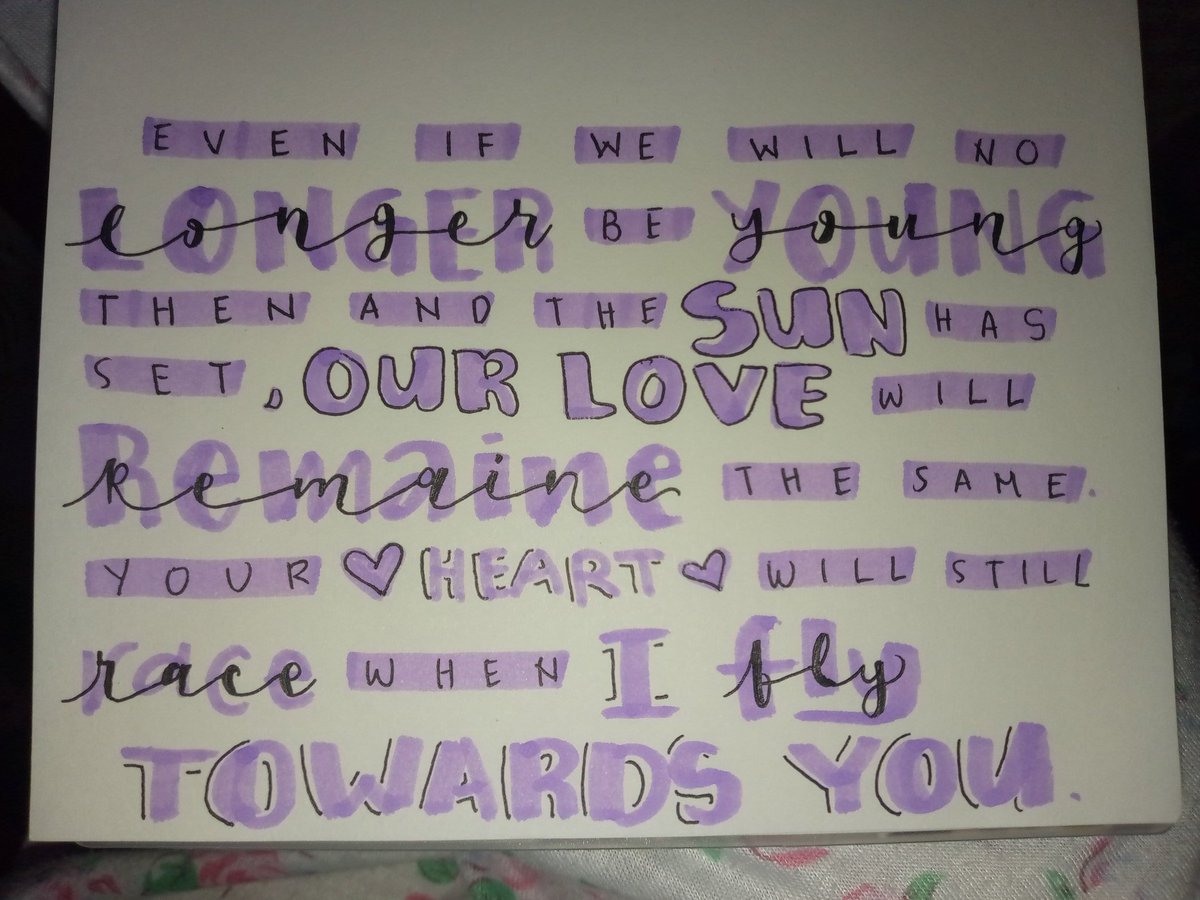 EVEN IF WE WILL NO
LONGER BE YOUNG
THEN AND THE SUN HAS
SET, OUR LOVE WILL
Remaine THE SAME.
YOUR HEART WILL STILL
race WHEN I fly
TOWARDS YOU.